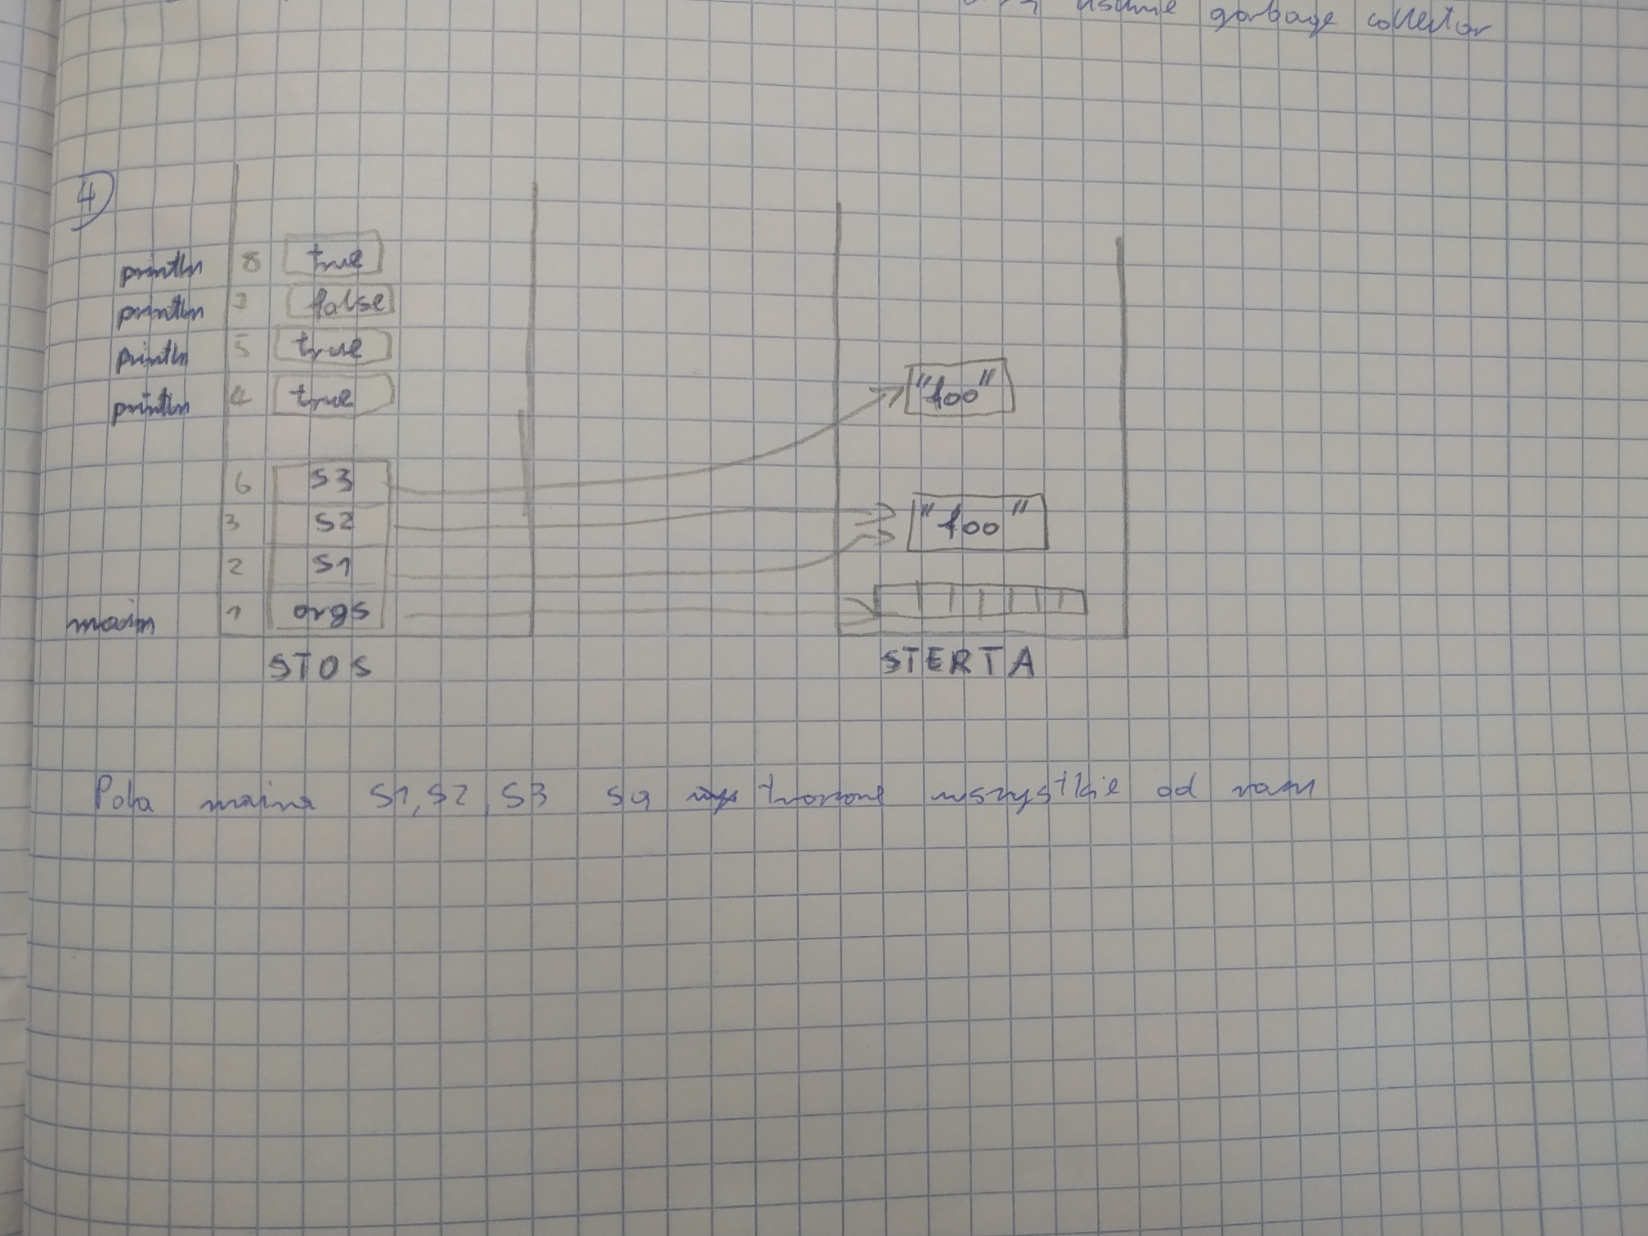 usunie garbage collector
4
println 8 true
println 7 false
println 5 true
println 4 true
"foo"
6 S3
3 S2
"foo"
2 S1
main 1 args
STOS STERTA
Pola maina S1, S2, S3 są tworzone wszystkie od razu